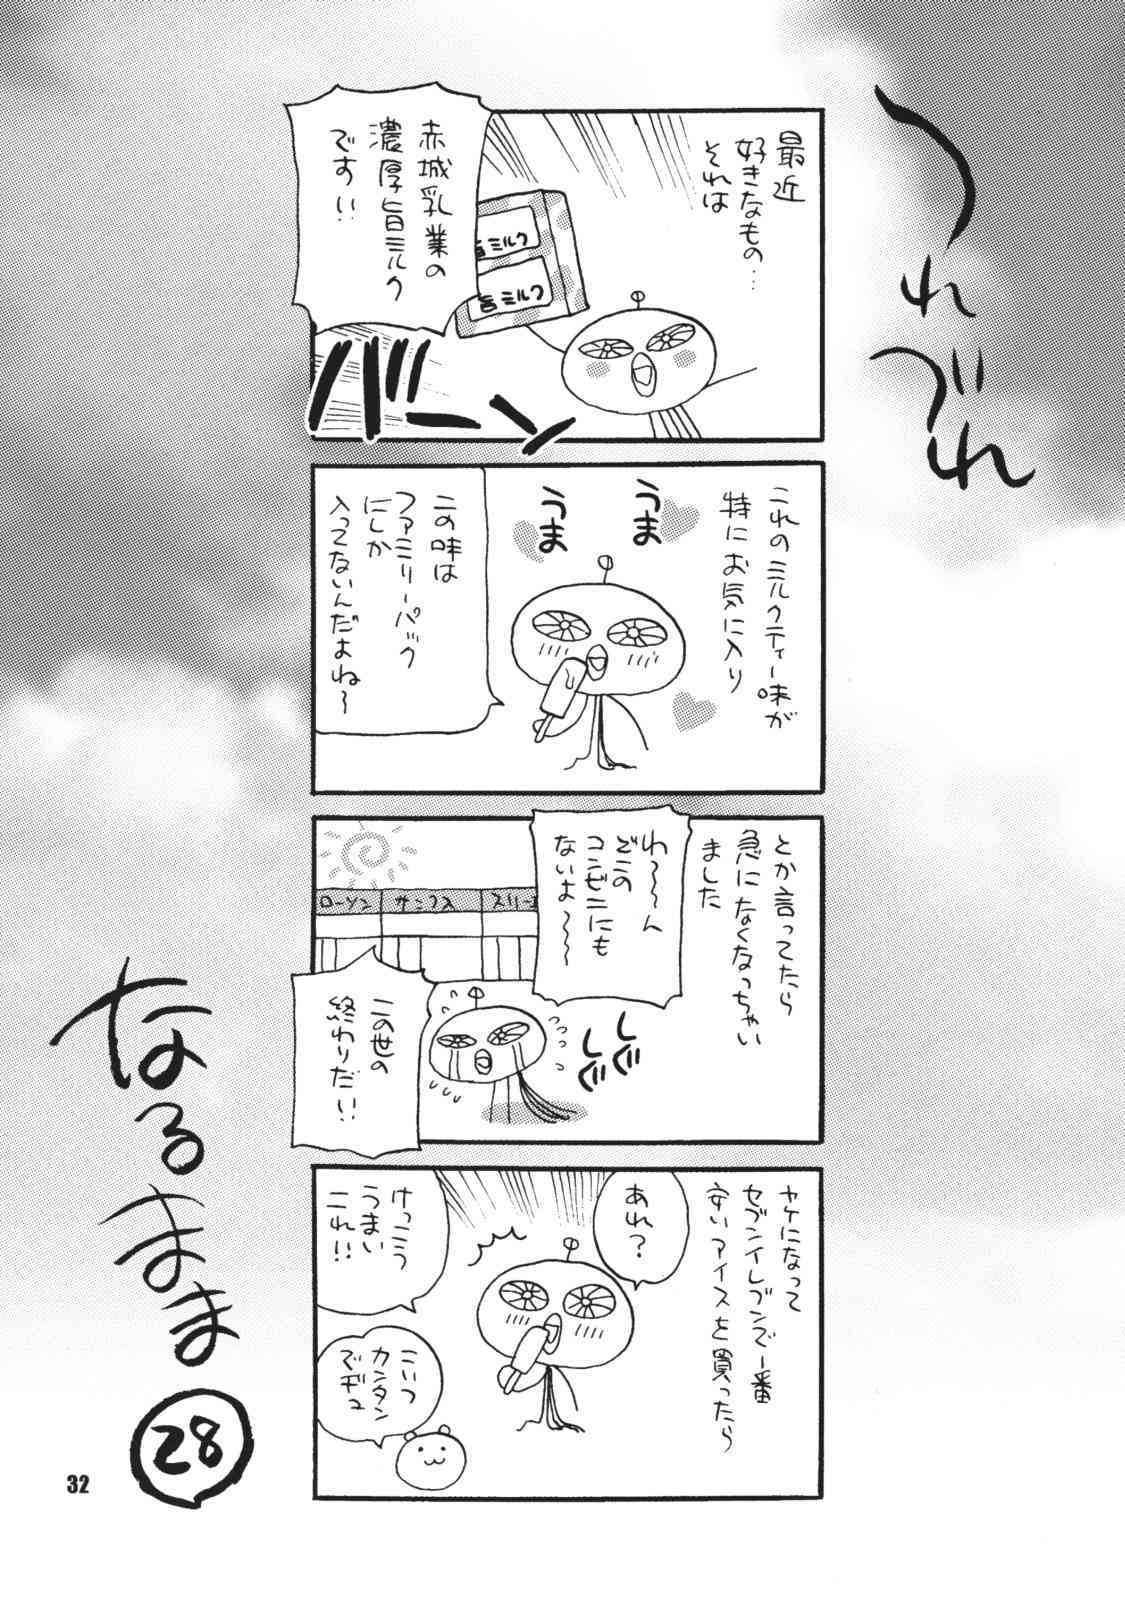 つれづれ
なるまま
28
最近
好きなもの…
それは
赤城乳業の
濃厚旨ミルク
です!!
旨ミルク
旨ミルク
バーン
これのミルクティー味が
特にお気に入り
うま
うま
この味は
ファミリーパック
にしか
入ってないんだよね～
とか言ってたら
急になくなっちゃい
ました
わ～～ん
どこの
コンビニにも
ないよ～～
ローソン
サンクス
スリーエ
しぐ
しぐ
この世の
終わりだ!!
ヤケになって
セブンイレブンで一番
安いアイスを買ったら
あれ?
けっこう
うまい
これ!!
こいつ
カンタン
でヂュ
32